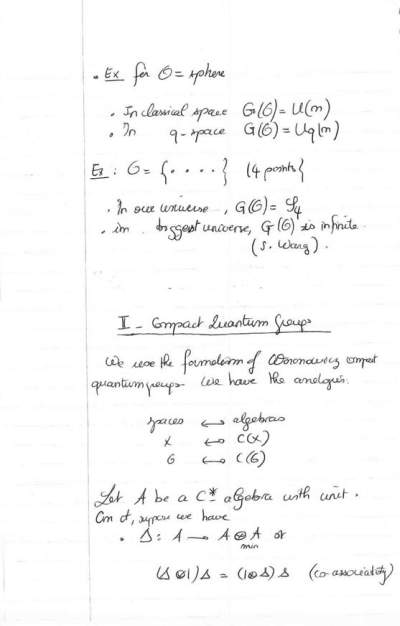 • Ex for O = sphere
• In classical space G(O) = U(n)
• In q-space G(O) = Uq(n)
Ex : O = {· · · ·} (4 points{
• In our universe, G(O) = S4
• in biggest universe, G(O) is infinite.
(S. Wang).
II - Compact Quantum Groups
We use the formalism of Woronowicz compact
quantum groups. We have the analogies.
spaces ↔ algebras
X ↔ C(X)
G ↔ C(G)
Let A be a C* algebra with unit.
On A, suppose we have
• Δ : A → A ⊗ A st
min
(Δ⊗1)Δ = (1⊗Δ)Δ (co-associativity)